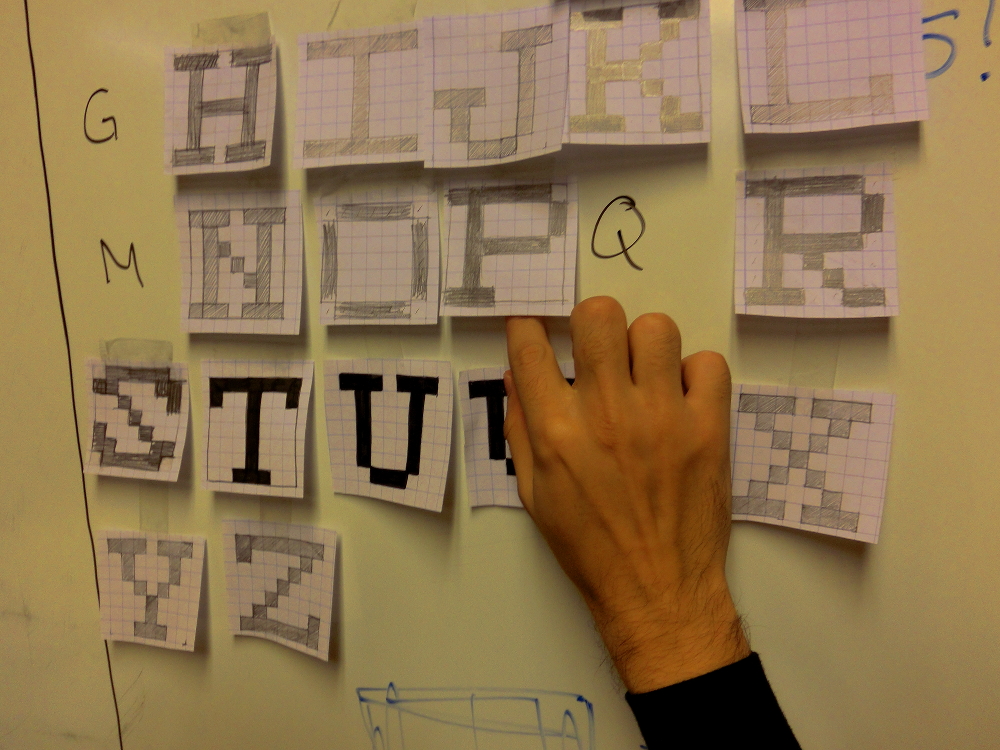 G H I J K L
M N O P Q R
S T U V X
Y Z